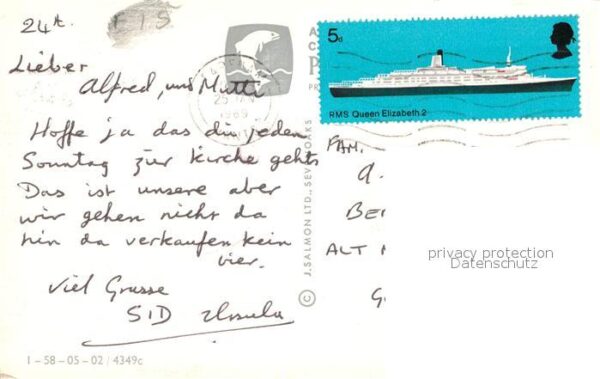 24th
EIS
Lieber
Alfred, und Mutti
Hoffe ja das du jeden
Sonntag zur Kirche gehts
Das ist unsere aber
wir gehen nicht da
hin da verkaufen kein
bier.
Viel Grusse
SID Ursula
I – 58 – 05 – 02 / 4349c
© J. SALMON LTD., SEVENOAKS
5d
RMS Queen Elizabeth 2
1969
FAM.
A.
BE
ALT
G
privacy protection
Datenschutz